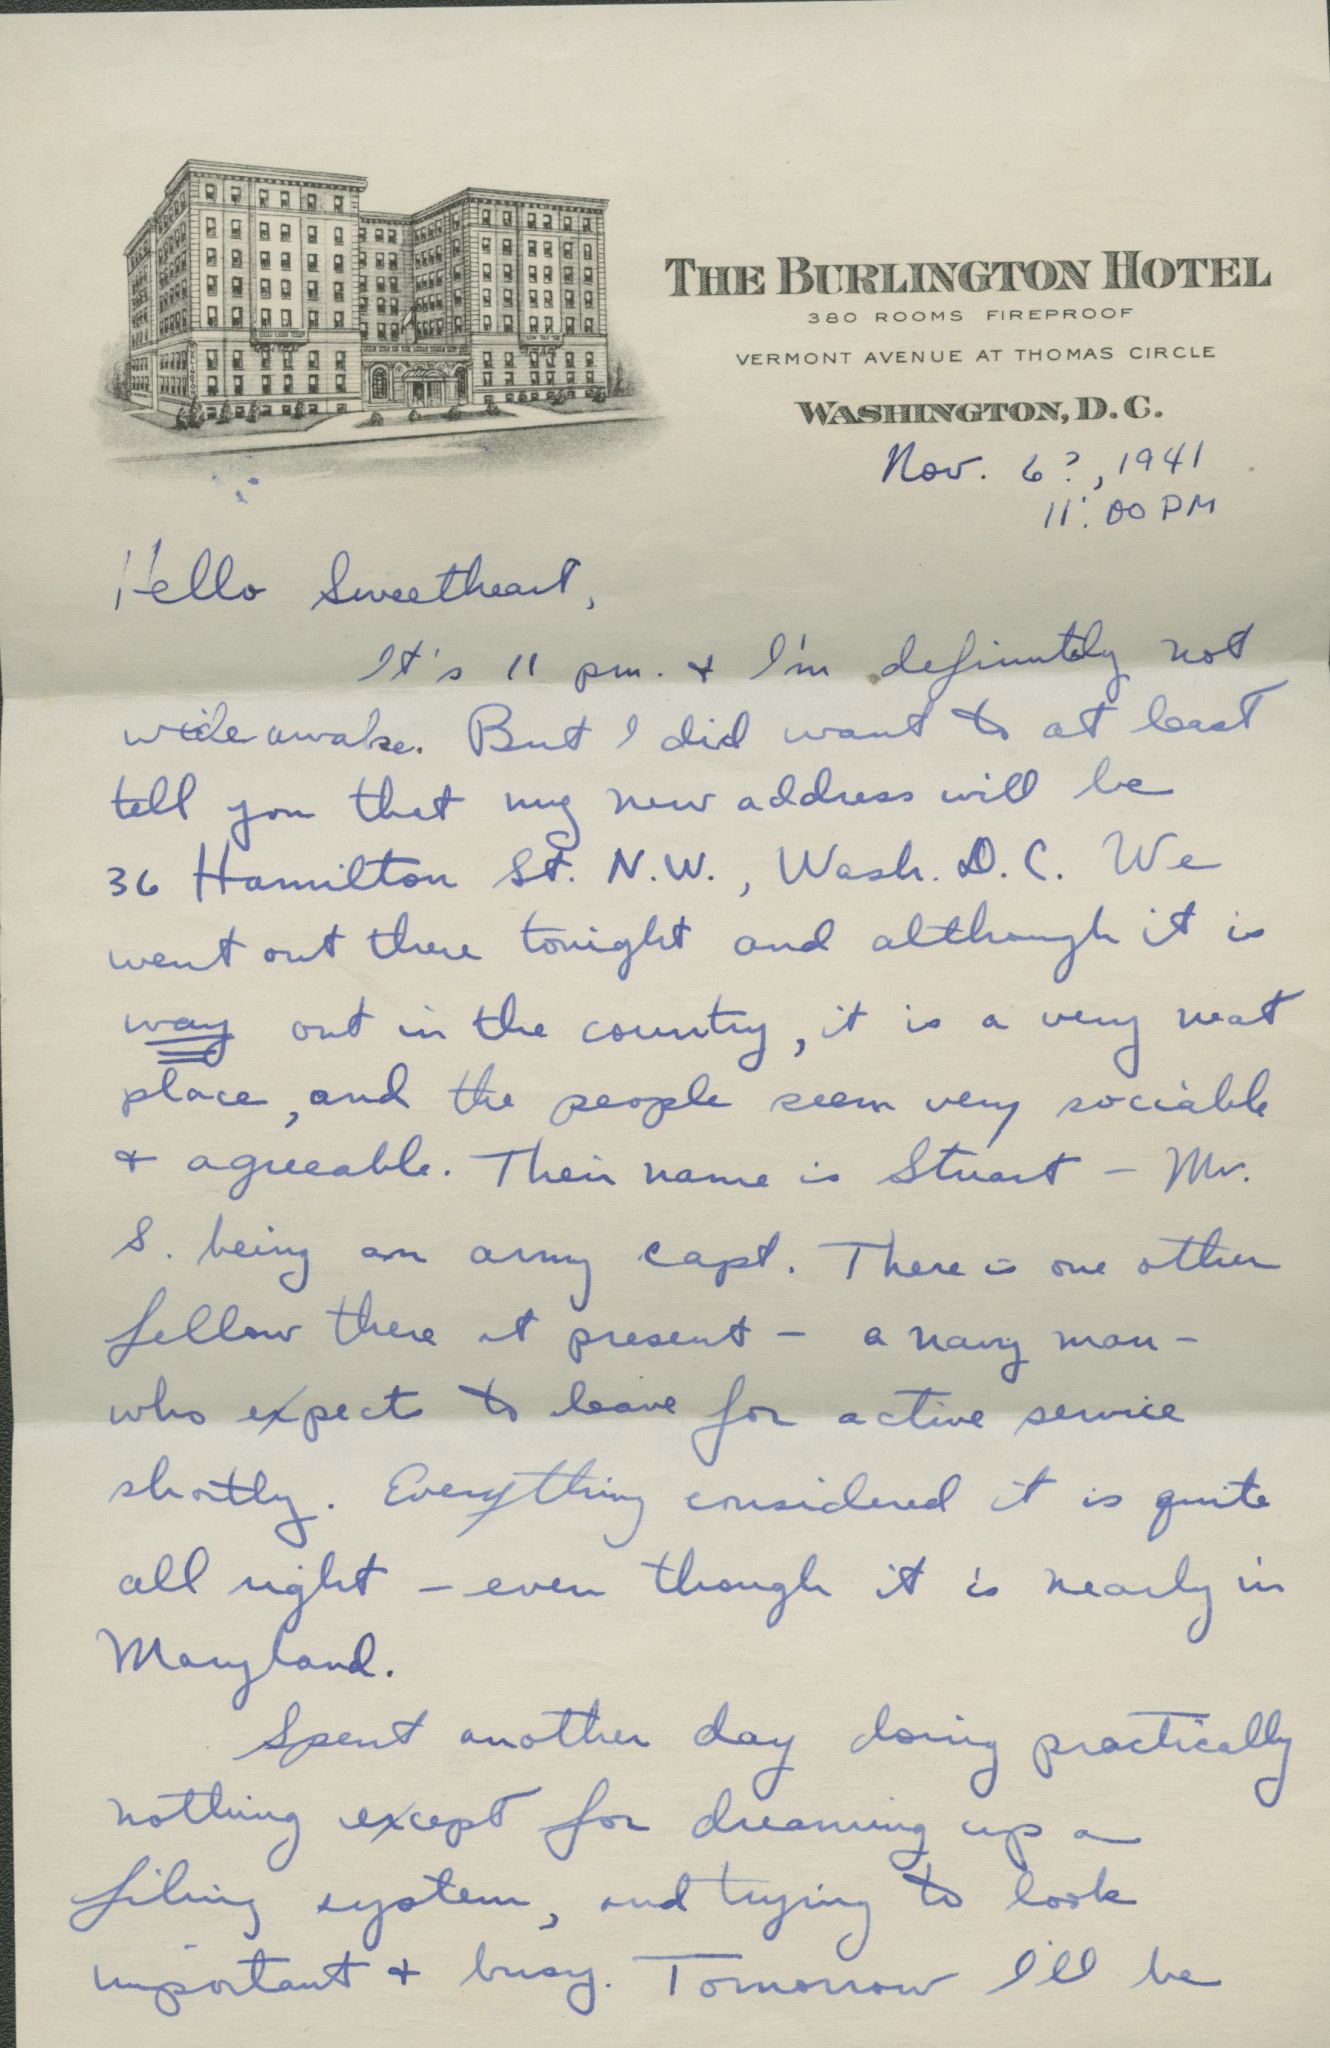 THE BURLINGTON HOTEL
380 ROOMS FIREPROOF
VERMONT AVENUE AT THOMAS CIRCLE
WASHINGTON, D.C.
Nov. 6?, 1941
11:00 PM
Hello Sweetheart,
It's 11 pm. + I'm definitely not
wide awake. But I did want to at least
tell you that my new address will be
36 Hamilton St. N.W., Wash. D.C. We
went out there tonight and although it is
way out in the country, it is a very neat
place, and the people seem very sociable
+ agreeable. Their name is Stuart - Mr.
S. being an army capt. There is one other
fellow there at present - a navy man -
who expects to leave for active service
shortly. Everything considered it is quite
all right - even though it is nearly in
Maryland.
Spent another day doing practically
nothing except for dreaming up a
filing system, and trying to look
important + busy. Tomorrow I'll be